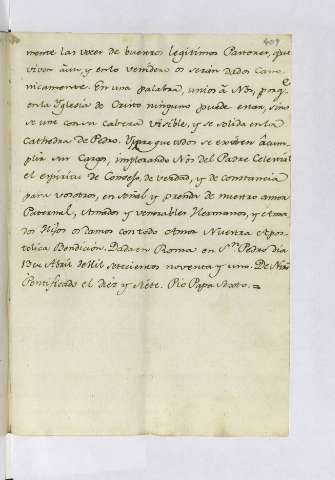 409
mente las voces de buenos legitimos Pastores, que
viven aun, y en lo venidero os serán dados Cano
nicamente. En una palabra, unios à Nos, porq.e
en la Yglesia de Cristo ninguno puede estar, sino
se une con su cabeza visible, y se solida en la
Cathedra de Pedro. Y para que todos se exciten à cum
plir sus Cargos, implorando Nos del Padre Celestial
el espiritu de Consejo, de verdad, y de constancia
para vosotros, en señal y prenda de nuestro amor
Paternal, Amados y venerables Hermanos, y ama
dos Hijos os damos con todo Amor Nuestra Apos
tolica Bendicion. Dada en Roma en S.n Pedro dia
13 de Abril de Mil setecientos noventa y uno. De Nro
Pontificado el diez y siete. Pio Papa Sexto. =